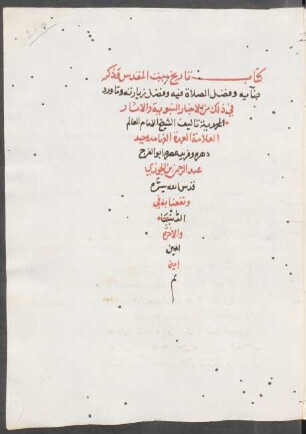 كتاب تاريخ بيت المقدس وذكر
بنائه وفضل الصلاة فيه وفضل زيارته وما ورد
في ذلك من الاخبار النبوية والاثار
المحمدية تاليف الشيخ الامام العالم
العلامة العمدة الفهامة وحيد
دهره وفريد عصره ابو الفرج
عبد الرحمن بن الجوزي
قدس الله سره
ونفعنا به في
الدنيا
والاخرة
امين
امين
تم